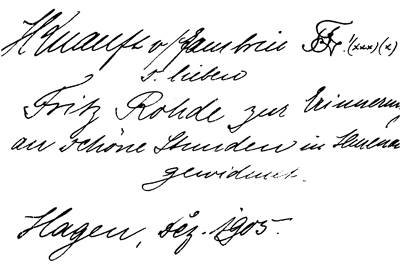 H Knauft v/o Gambrin (xxx)(x)
s. lieben
Fritz Rohde zur Erinnerung
an schöne Stunden in Ilmenau
gewidmet.
Hagen, Dez. 1905.